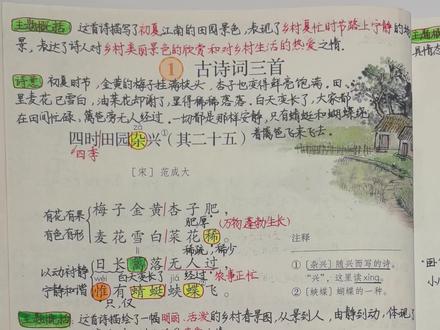 主题概括 这首诗描写了初夏江南的田园景色,表现了乡村夏忙时节路上宁静的场
景,表达了诗人对乡村美丽景色的欣赏和对乡村生活的热爱之情。
1 古诗词三首
诗意 初夏时节,金黄的梅子挂满枝头,杏子也变得鲜亮饱满,田
里麦花已雪白,油菜花却谢了,显得稀稀落落。白天变长了,大家都
在田间忙碌,篱笆旁无人经过,一切都是那样安静,只有蜻蜓和蝴蝶绕
着篱笆飞来飞去。
zá
四时田园杂兴①(其二十五)
四季
[宋] 范成大
有花有果
有色有形
梅子金黄杏子肥,
肥厚 (万物蓬勃生长)
麦花雪白菜花稀。
稀疏,稀少
日长篱落无人过,
以动衬静
宁静和谐
白天变长了 经过 农事正忙
惟有蜻蜓蛱蝶飞。
只,仅
注释
① [杂兴] 随兴而写的诗。
“兴”,这里读xìng。
② [蛱蝶] 蝴蝶的一种。
这首诗描绘了一幅明丽、活泼的乡村春景图,从景到人,由静到动,体现了